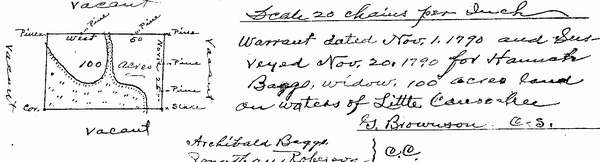 Vacant
Pine
Pine
Pine
Pine
West 50
Vacant
100 acres
North 20
Vacant
Pine
Pine
Cor.
Stake
Vacant
Scale 20 chains per Inch
Warrant dated Nov. 1. 1790 and Sur-
veyed Nov. 20, 1790 for Hannah
Baggs, widow, 100 acres land
on waters of Little Canoochee
Brownson C.S.
Archibald Baggs
Jonathan Roberson
} C.C.